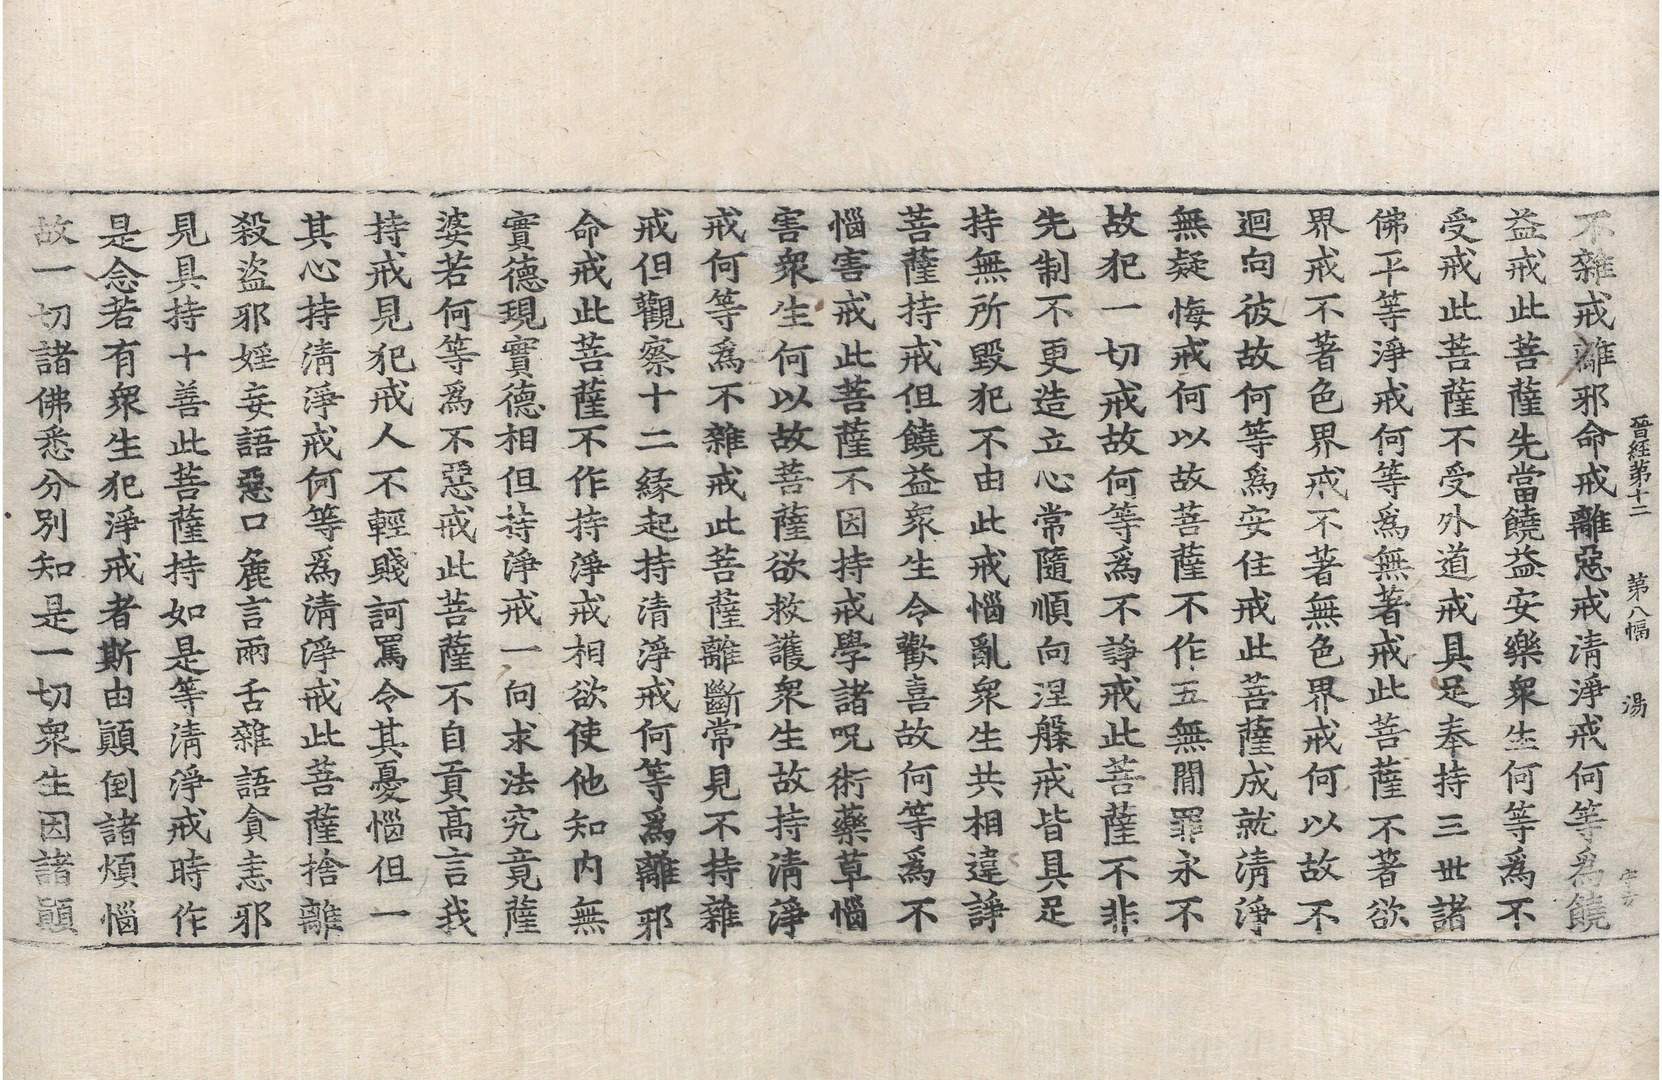 晉經第十二　第八幅　湯
不雜戒離邪命戒離惡戒清淨戒何等爲饒
益戒此菩薩先當饒益安樂衆生何等爲不
受戒此菩薩不受外道戒具足奉持三世諸
佛平等淨戒何等爲無著戒此菩薩不著欲
界戒不著色界戒不著無色界戒何以故不
迴向彼故何等爲安住戒此菩薩成就清淨
無疑悔戒何以故菩薩不作五無閒罪永不
故犯一切戒故何等爲不諍戒此菩薩不非
先制不更造立心常隨順向涅槃戒皆具足
持無所毀犯不由此戒惱亂衆生共相違諍
菩薩持戒但饒益衆生令歡喜故何等爲不
惱害戒此菩薩不因持戒學諸呪術藥草惱
害衆生何以故菩薩欲救護衆生故持清淨
戒何等爲不雜戒此菩薩離斷常見不持雜
戒但觀察十二緣起持清淨戒何等爲離邪
命戒此菩薩不作持淨戒相欲使他知內無
實德現實德相但持淨戒一向求法究竟薩
婆若何等爲不惡戒此菩薩不自貢高言我
持戒見犯戒人不輕賤訶罵令其憂惱但一
其心持清淨戒何等爲清淨戒此菩薩捨離
殺盜邪婬妄語惡口麁言兩舌雜語貪恚邪
見具持十善此菩薩持如是等清淨戒時作
是念若有衆生犯淨戒者斯由顚倒諸煩惱
故一切諸佛悉分別知是一切衆生因諸顚